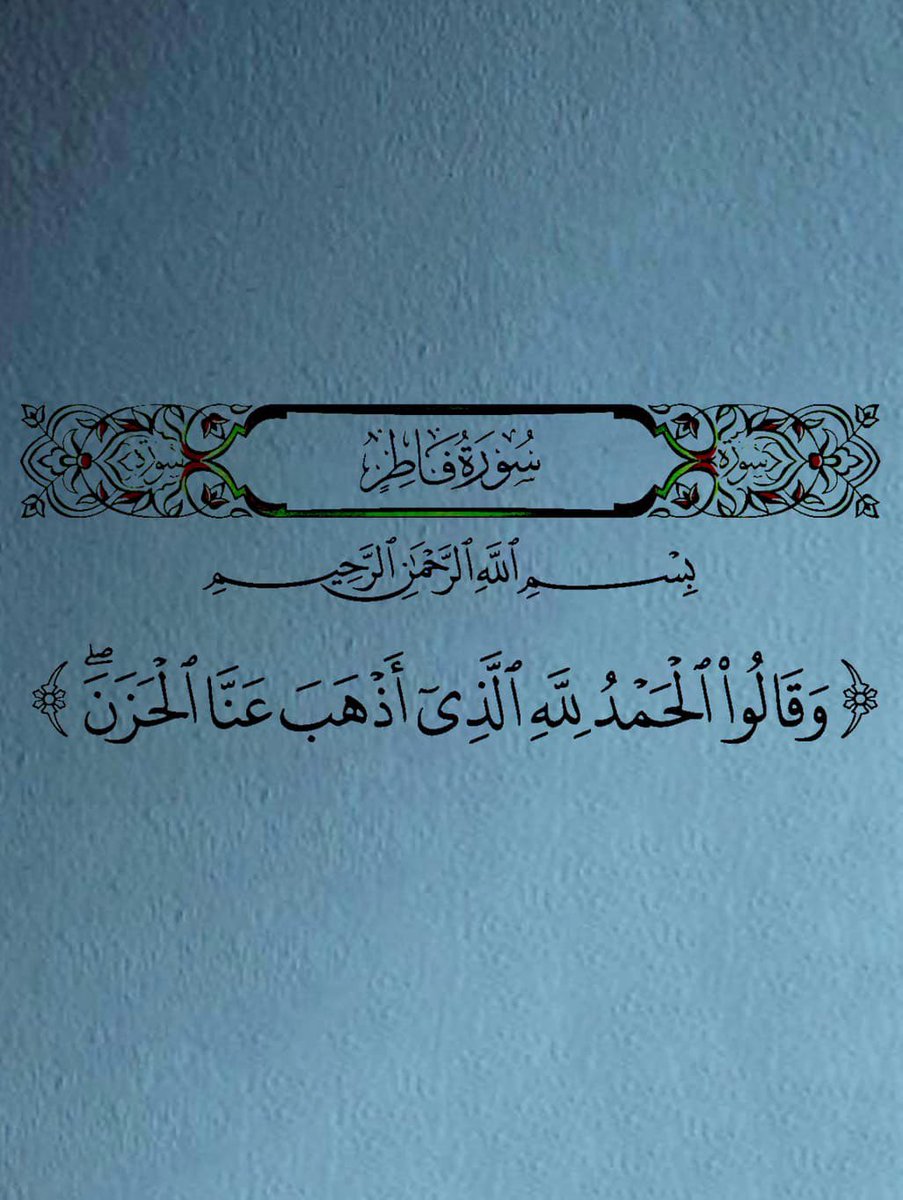 سورة
سُورَةُ فَاطِرٍ
سورة
بِسْمِ ٱللَّهِ ٱلرَّحْمَٰنِ ٱلرَّحِيمِ
﴿وَقَالُوا۟ ٱلْحَمْدُ لِلَّهِ ٱلَّذِىٓ أَذْهَبَ عَنَّا ٱلْحَزَنَ ۖ﴾